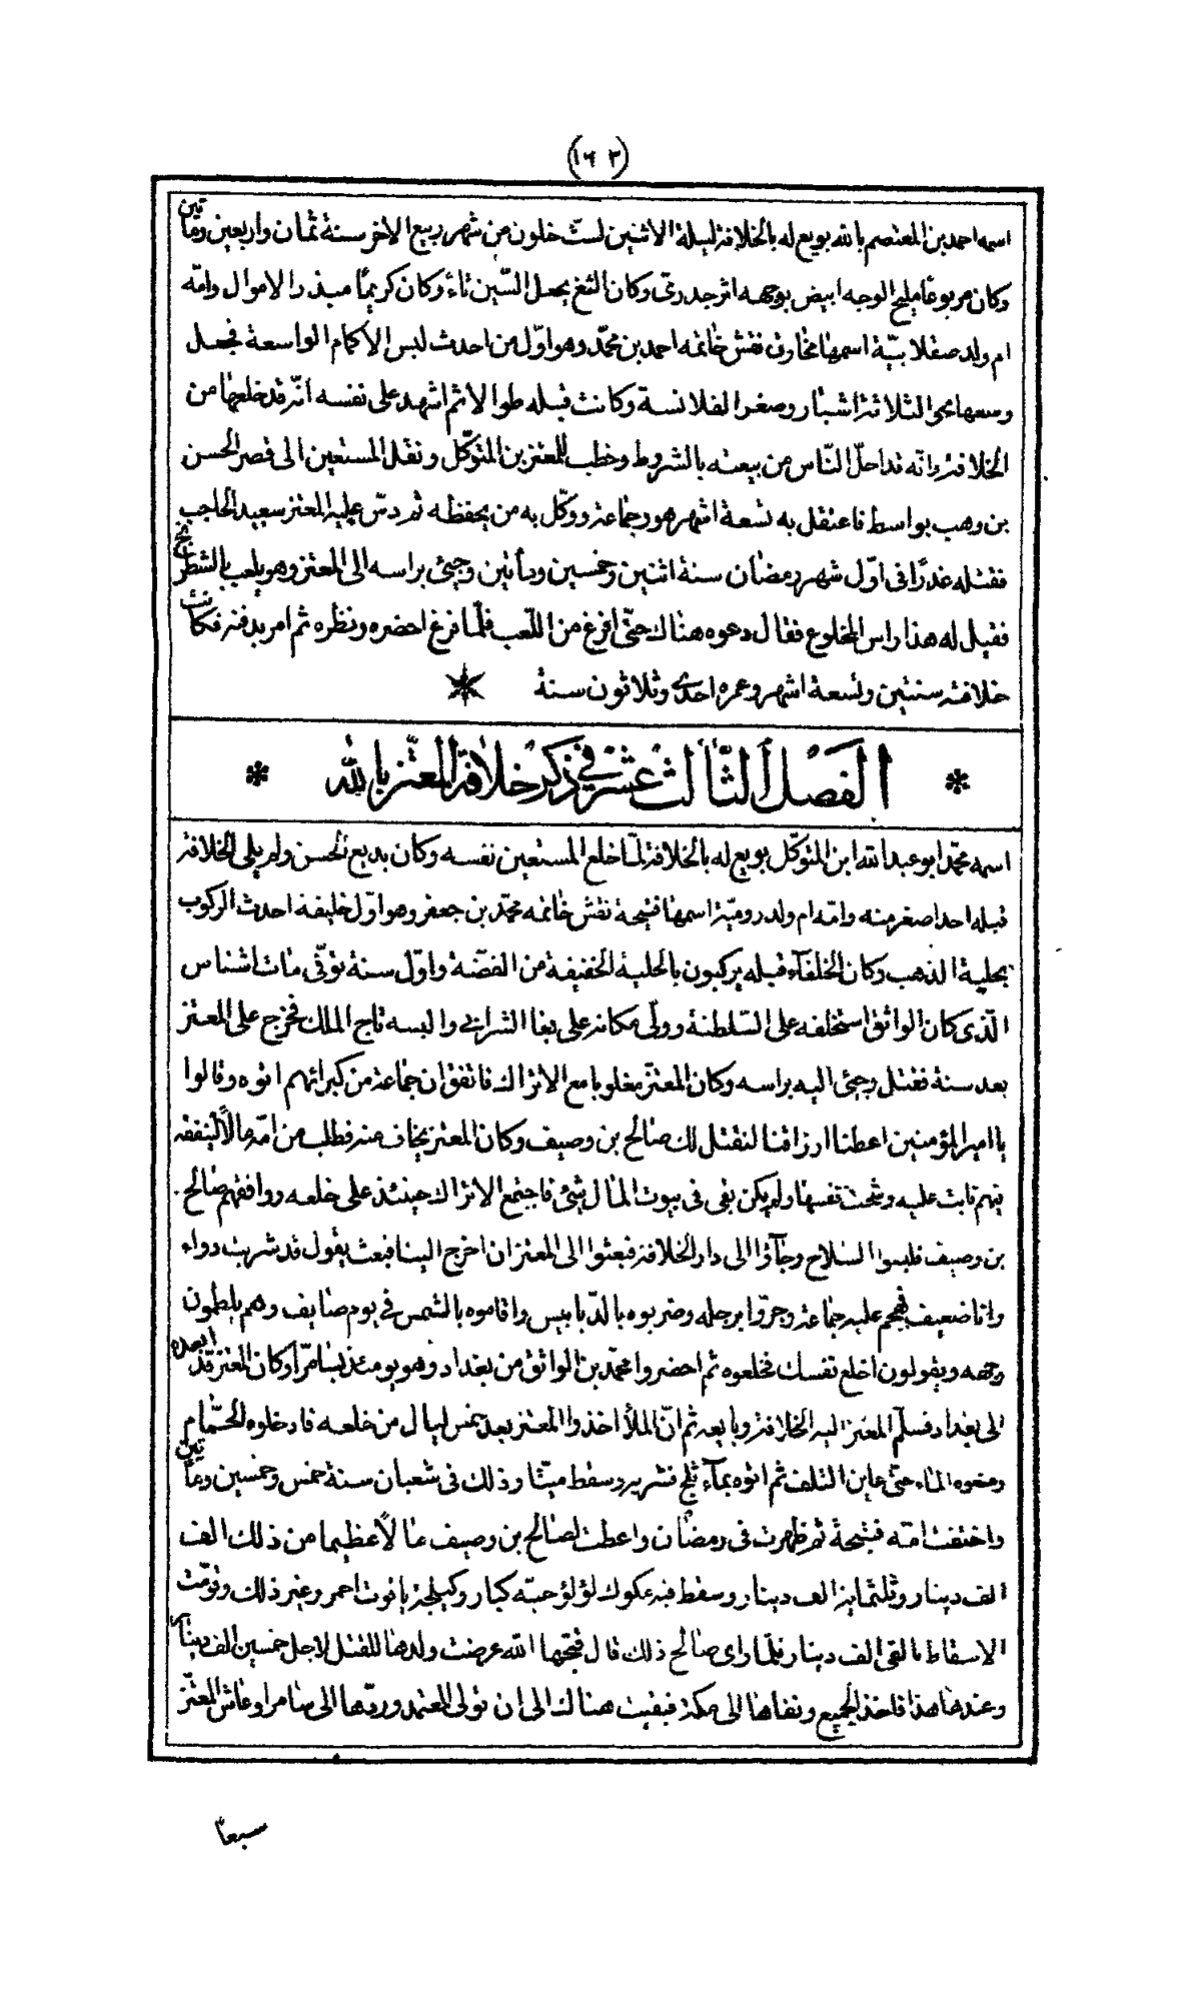 (١٦٣)
اسمه احمد بن المعتصم بالله بويع له بالخلافة ليلة الاثنين لستّ خلون من شهر ربيع الاخر سنة ثمان واربعين ومأتين
وكان مربوعا مليح الوجه ابيض بوجهه اثر جدرىّ وكان الثغ يجعل السّين ثاء وكان كريمًا مبذرا لاموال وامّه
ام ولد صقلابيّة اسمها مخارق نقش خاتمه احمد بن محمّد وهو اوّل من احدث لبس الاكمام الواسعة فجعل
وسعها نحو الثلاثة اشبار وصغر القلانسة وكانت قبله طوالا ثم اشهد على نفسه انّه قد خلعها من
الخلافة وانه قد احلّ النّاس من بيعته بالشروط وخطب للمعتز بن المتوكّل ونقل المستعين الى قصر الحسن
بن وهب بواسط فاعتقل به تسعة اشهر هو وجماعة ووكّل به من يحفظه ثم دسّ عليه المعتز سعيد الحاجب
فقتله غدرًا فى اوّل شهر رمضان سنة اثنين وخمسين ومأتين وجئ براسه الى المعتز وهو يلعب بالشطرنج
فقيل له هذا راس المخلوع فقال دعوه هناك حتّى افرغ من اللّعب فلّما فرغ احضره ونظره ثم امر بدفنه فكانت
خلافته سنتين وتسعة اشهر وعمره احدى وثلاثون سنة
الفصل الثالث عشر في ذكر خلافة المعتز بالله
اسمه محمّد ابو عبد الله ابن المتوكّل بويع له بالخلافة لمّا خلع المستعين نفسه وكان بديع الحسن ولم يلى الخلافة
قبله احد اصغر منه وامّه ام ولد روميّة اسمها قبيحة نقش خاتمه محمّد بن جعفر وهو اوّل خليفة احدث الركوب
بحلية الذهب وكان الخلفاء قبله يركبون بالحلية الخفيفة من الفضّة واوّل سنة تولّى مات اشناس
الّذى كان الواثق استخلفه على السّلطنة وولّى مكانه على بغا الشرابي والبسه تاج الملك فخرج على المعتز
بعد سنة فقتل وجئ اليه براسه وكان المعتزّ مغلوبا مع الاتراك فاتفق ان جماعة من كبرائهم اتوه وقالوا
يا امير المؤمنين اعطنا ارزاقنا لنقتل لك صالح بن وصيف وكان المعتز يخاف منه فطلب من امّه مالًا لينفقه
فيهم فابت عليه وشحت نفسها ولم يكن بقى فى بيوت المال شئ فاجتمع الاتراك حينئذ على خلعه ووافقهم صالح
بن وصيف فلبسوا السلاح وجآؤا الى دار الخلافة فبعثوا الى المعتز ان اخرج الينا فبعث يقول قد شربت دواء
وانا ضعيف فهجم عليه جماعة وجرّوا برجله وضربوه بالدّبابيس واقاموه بالشمس في يوم صايف وهم يلطمون
وجهه ويقولون اخلع نفسك فخلعوه ثم احضروا محمّد بن الواثق من بغداد وهو يومئذ بسامرّا وكان المعتز قد ابعده
الى بغداد فسلّم المعتز اليه الخلافة وبايعه ثم انّ الملأ اخذوا المعتز بعد خمس ليال من خلعه فادخلوه الحمّام
ومنعوه الماء حتى عاين التلف ثم اتوه بمآء ثلج فشربه وسقط ميتا وذلك فى شعبان سنة خمس وخمسين ومأتين
واختفت امّه قبيحة ثم ظهرت فى رمضان واعطت لصالح بن وصيف مالًا عظيما من ذلك الف
الف دينار وثلثماية الف دينار وسقط فيه مكوك لؤلؤ حبّه كبار وكيلجة ياقوت احمر وغير ذلك وقومّت
الاسقاط بالفى الف دينار فلمّا راى صالح ذلك قال قبّحها الله عرضت ولدها للقتل لاجل خمسين الف دينار
وعندها هذا فاخذ الجميع ونفاها الى مكة فبقيت هناك الى ان تولى المعتمد وردّها الى سامرا وعاش المعتزّ
سبعاً